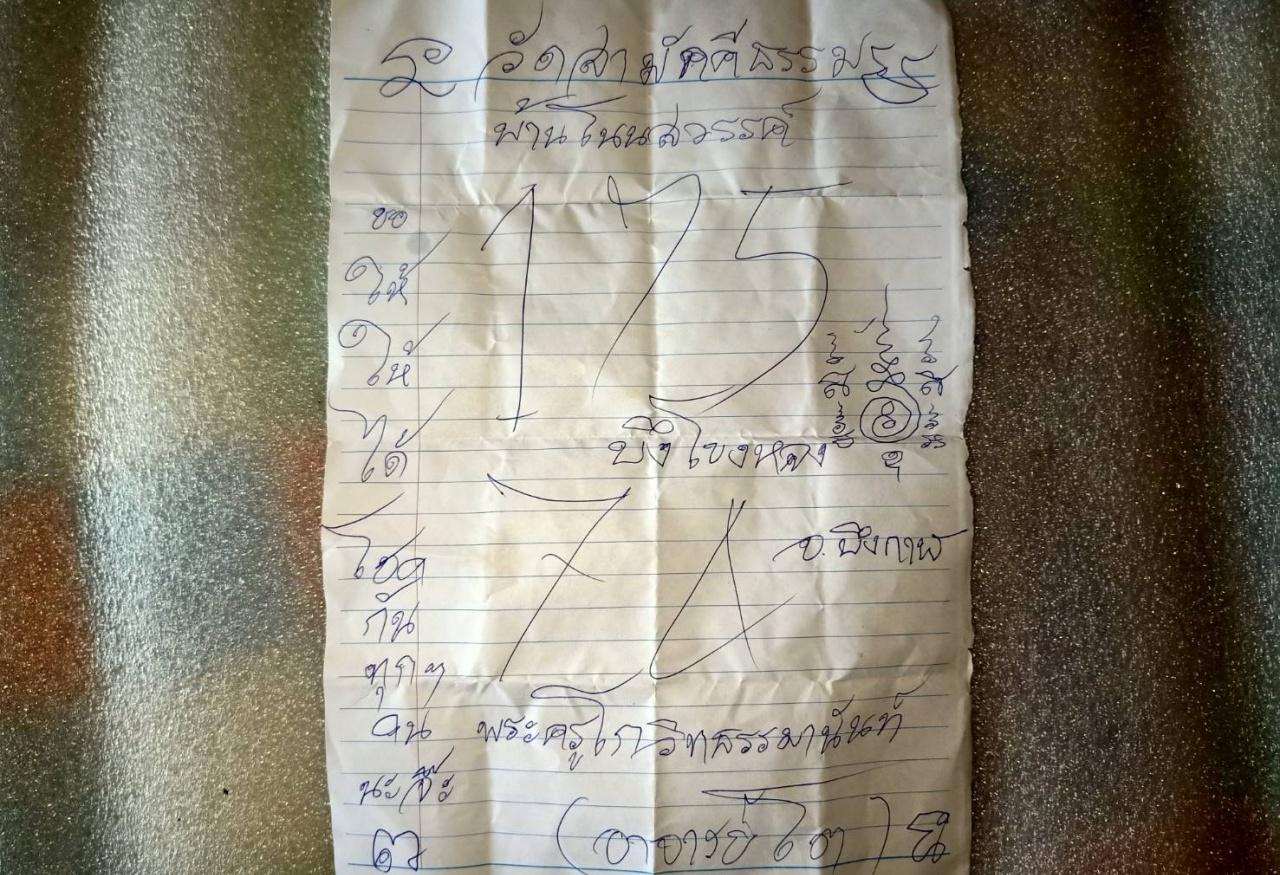 วัดสามัคคีธรรม
บ้านโนนสวรรค์
175
บึงโขงหลง
จ.บึงกาฬ
พระครูโกวิทธรรมานันท์
(อาจารย์โต)
ขอ
ให้
ให้
ได้
โชค
กัน
ทุกๆ
คน
นะจ๊ะ